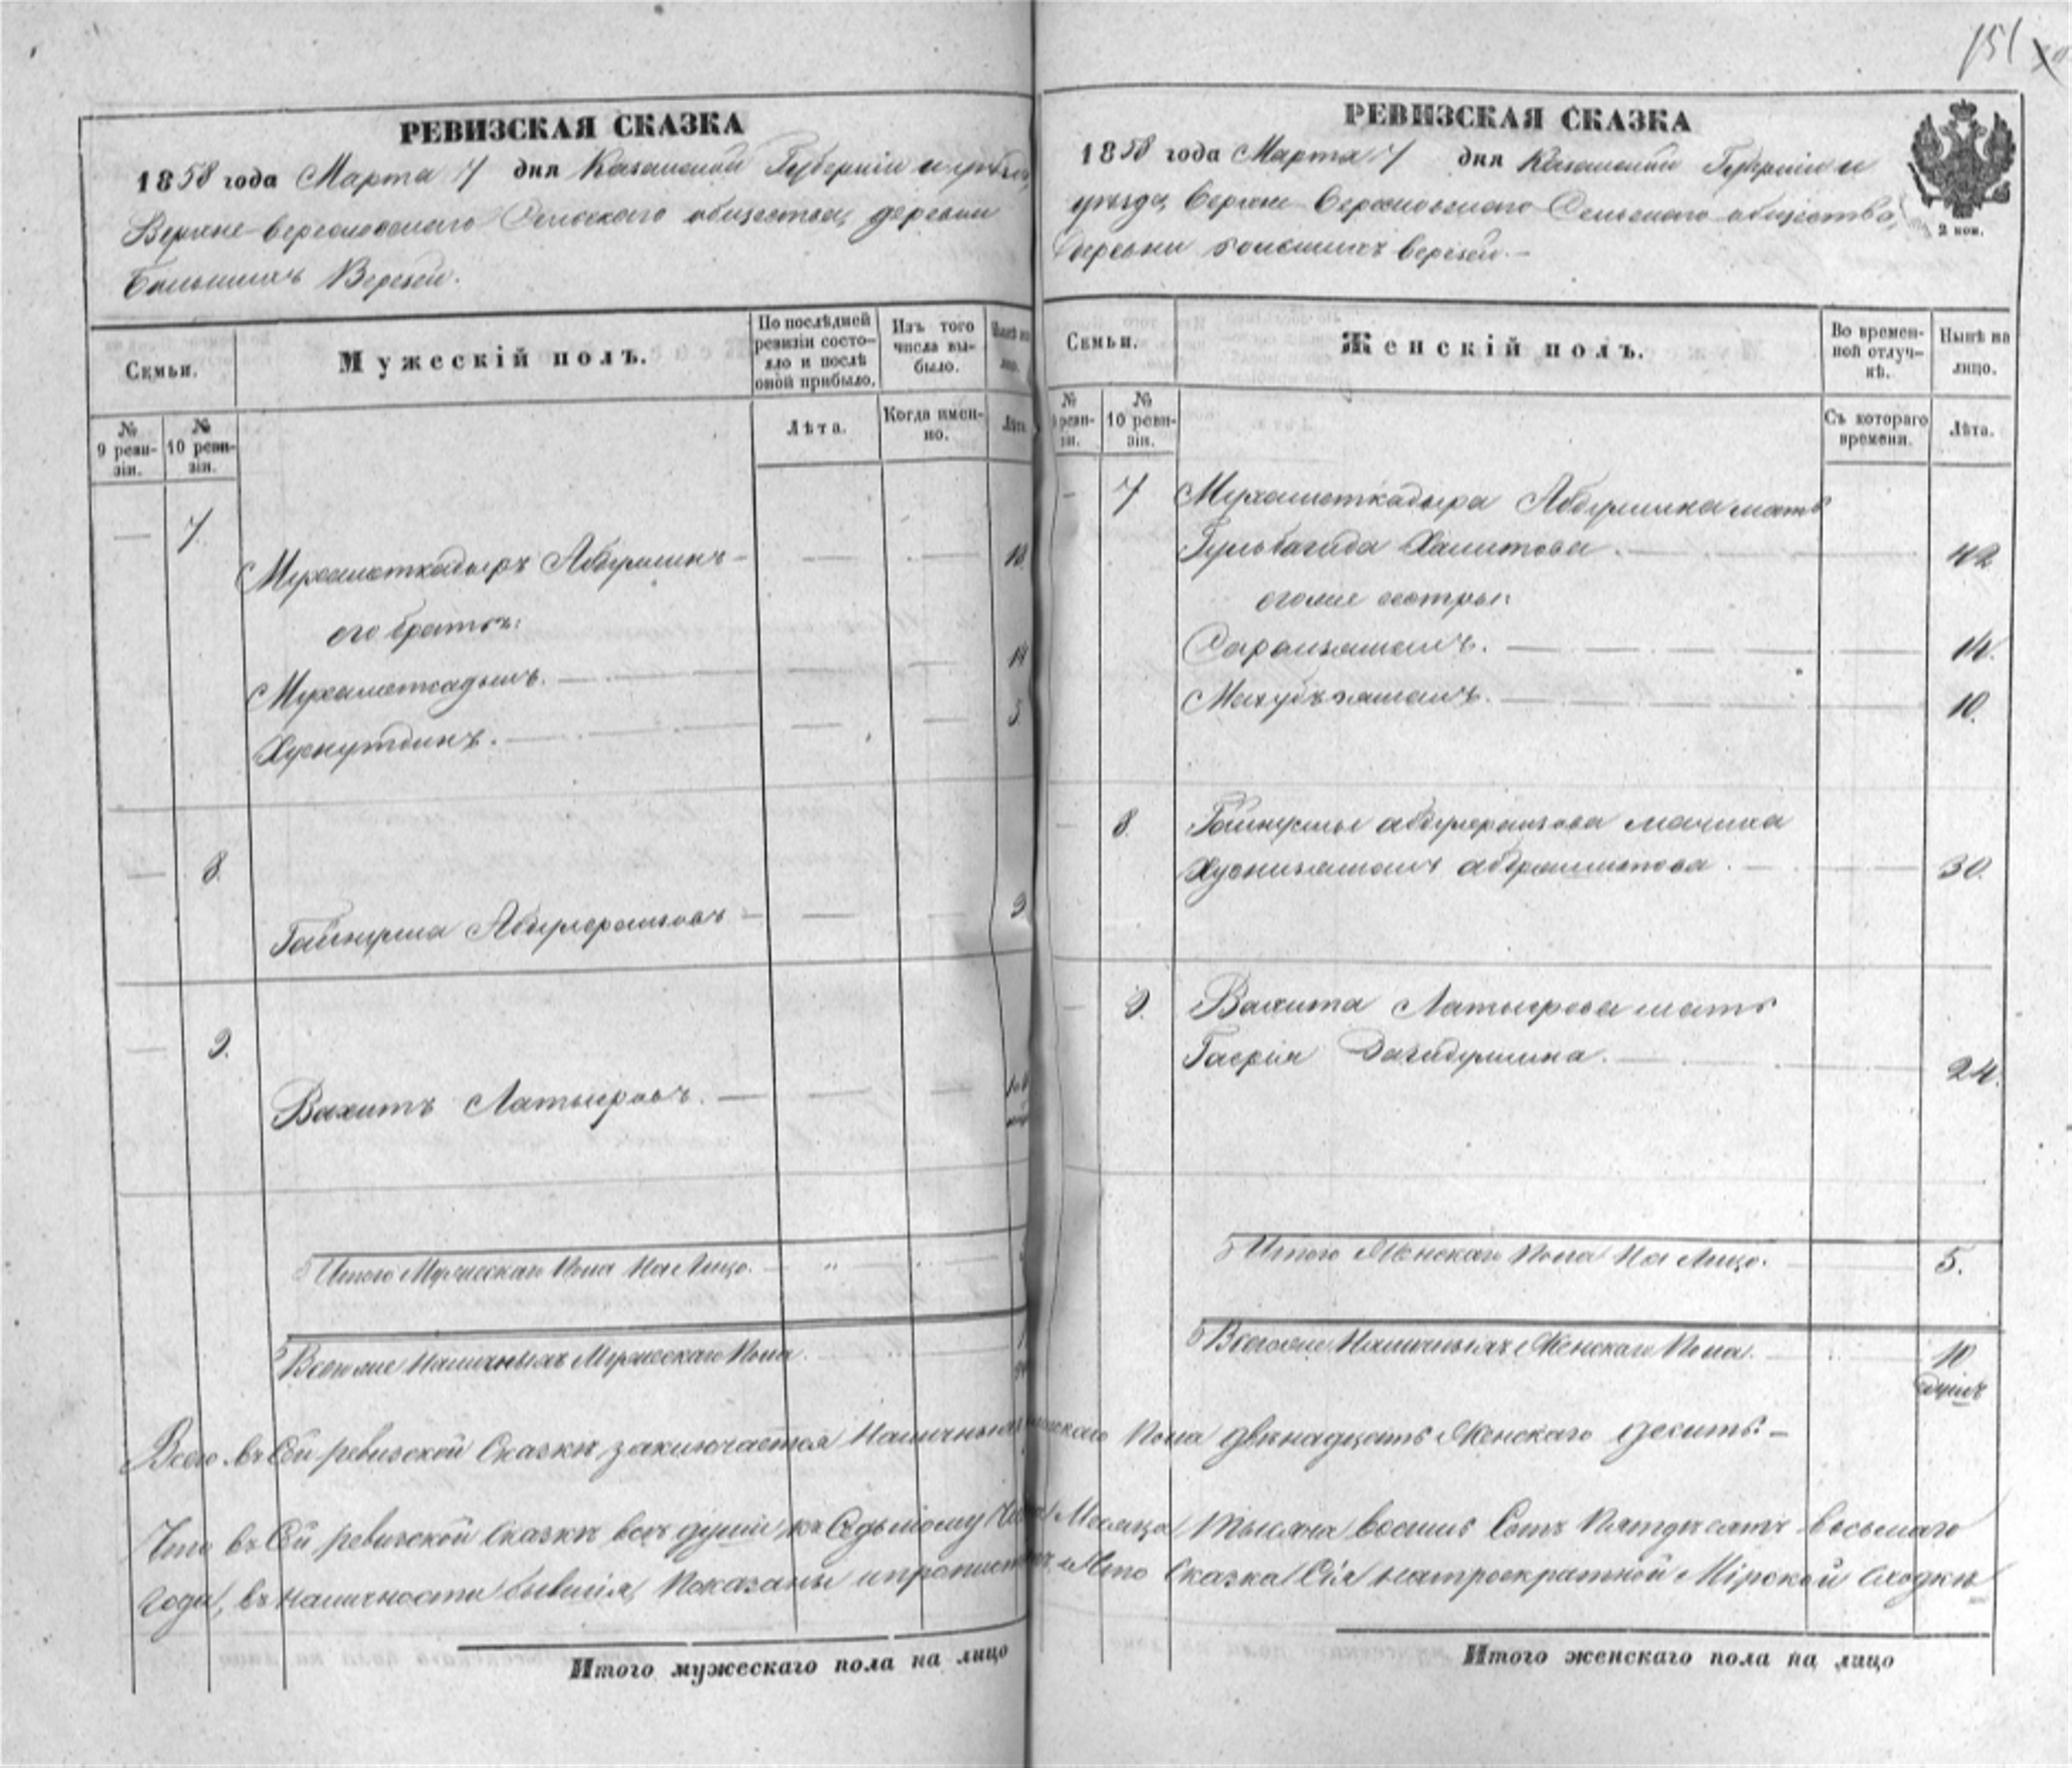 151
РЕВИЗСКАЯ СКАЗКА
1858 года Марта 7 дня Казанской Губерніи и уѣзда,
Верхне-Верезовскаго Сельскаго общества, деревни
Большихъ Верези.
Семьи.
Мужескій полъ.
По послѣдней
ревизіи состо-
яло и послѣ
оной прибыло.
Изъ того
числа вы-
было.
№
9 реви-
зіи.
№
10 реви-
зіи.
Лѣта.
Когда имен-
но.
Лѣта
— 7.
Мухаметкадыръ Абдуллинъ — 18
его братья:
Мухаметкадымъ. — 14
Хуснутдинъ. — 5
— 8.
Гайнулла Абдулфаизовъ — 9
— 9.
Вахитъ Латыповъ. —
Итого Мужескаго Пола На Лицо. — "
Всего же Наличныхъ Мужескаго Пола.
РЕВИЗСКАЯ СКАЗКА
1858 года Марта 7 дня Казанской Губерніи и
уѣзда, Верхне Верезовскаго Сельскаго общества,
деревни большихъ Верези. —
2 коп.
Семьи.
Женскій полъ.
Во времен-
ной отлуч-
кѣ.
Нынѣ на
лицо.
№
реви-
зіи.
№
10 реви-
зіи.
Съ котораго
времени.
Лѣта.
— 7 Мухаметкадыра Абдуллина мать
Гульбагида Халитова. — 42
его же сестры:
— 14.
— 10.
— 8. Гайнуллы Абдулфаизова мачиха
Хуснизямалъ — 30.
— 9. Вахита Латыпова мать
24.
Итого Женскаго Пола На Лицо. 5.
Всего же Наличныхъ Женскаго Пола. 10
душъ
Всего въ сей ревизской Сказкѣ заключается Наличныхъ Мужескаго Пола двѣнадцать Женскаго десить. —
Что въ Сей ревизской Сказкѣ всѣ души къ Седьмому Числу Месяца Тысяча восимь Сотъ Пятдесять восьмаго
года, въ наличности бывшія, показаны и что Сказка Сія на троекратной Мірской Сходкѣ
Итого мужескаго пола на лицо
Итого женскаго пола на лицо